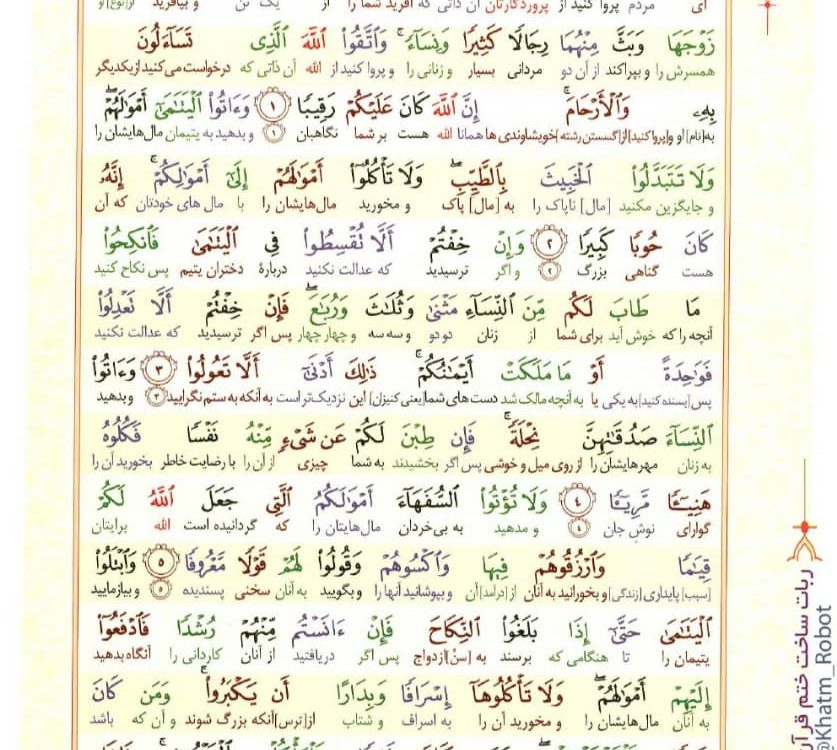 ای مردم پروا کنید از پروردگارتان آن ذاتی که آفرید شما را از یک تن و بیافرید از[نوع] او
زَوْجَهَا وَبَثَّ مِنْهُمَا رِجَالًا كَثِيرًا وَنِسَاءً ۚ وَاتَّقُوا اللَّهَ الَّذِي تَسَاءَلُونَ
همسرش را و بپراکند از آن دو مردانی بسیار و زنانی را و پروا کنید از الله آن ذاتی که درخواست می‌کنید از یکدیگر
بِهِ وَالْأَرْحَامَ ۚ إِنَّ اللَّهَ كَانَ عَلَيْكُمْ رَقِيبًا ۱ وَءَاتُوا الْيَتَامَىٰ أَمْوَالَهُمْ ۖ
به[نام] او و[پروا کنید] از[گسستن رشته] خویشاوندی ها همانا الله هست بر شما نگاهبان ۱ و بدهید به یتیمان مال‌هایشان را
وَلَا تَتَبَدَّلُوا الْخَبِيثَ بِالطَّيِّبِ ۖ وَلَا تَأْكُلُوا أَمْوَالَهُمْ إِلَىٰ أَمْوَالِكُمْ ۚ إِنَّهُ
و جایگزین مکنید [مال] ناپاک را به [مال] پاک و مخورید مال‌هایشان را با مال های خودتان که آن
كَانَ حُوبًا كَبِيرًا ۲ وَإِنْ خِفْتُمْ أَلَّا تُقْسِطُوا فِي الْيَتَامَىٰ فَانْكِحُوا
هست گناهی بزرگ ۲ و اگر ترسیدید که عدالت نکنید دربارهٔ دختران یتیم پس نکاح کنید
مَا طَابَ لَكُم مِّنَ النِّسَاءِ مَثْنَىٰ وَثُلَاثَ وَرُبَاعَ ۖ فَإِنْ خِفْتُمْ أَلَّا تَعْدِلُوا
آنچه را که خوش آید برای شما از زنان دو دو و سه سه و چهار چهار پس اگر ترسیدید که عدالت نکنید
فَوَاحِدَةً أَوْ مَا مَلَكَتْ أَيْمَانُكُمْ ۚ ذَٰلِكَ أَدْنَىٰ أَلَّا تَعُولُوا ۳ وَءَاتُوا
پس[بسنده کنید] به یکی یا به آنچه مالک شد دست های شما[یعنی کنیزان] این نزدیک‌تر است به آنکه به ستم نگرایید ۳ و بدهید
النِّسَاءَ صَدُقَاتِهِنَّ نِحْلَةً ۚ فَإِن طِبْنَ لَكُمْ عَن شَيْءٍ مِّنْهُ نَفْسًا فَكُلُوهُ
به زنان مهرهایشان را از روی میل و خوشی پس اگر بخشیدند به شما چیزی از آن را با رضایت خاطر بخورید آن را
هَنِيئًا مَّرِيئًا ۴ وَلَا تُؤْتُوا السُّفَهَاءَ أَمْوَالَكُمُ الَّتِي جَعَلَ اللَّهُ لَكُمْ
گوارای نوش جان ۴ و مدهید به بی‌خردان مال‌هایتان را که گردانیده است الله برایتان
قِيَامًا وَارْزُقُوهُمْ فِيهَا وَاكْسُوهُمْ وَقُولُوا لَهُمْ قَوْلًا مَّعْرُوفًا ۵ وَابْتَلُوا
[سبب] پایداری [زندگی] و بخورانید به آنان از [درآمد] آن و بپوشانید آنها را و بگویید به آنان سخنی پسندیده ۵ و بیازمایید
الْيَتَامَىٰ حَتَّىٰ إِذَا بَلَغُوا النِّكَاحَ فَإِنْ ءَانَسْتُم مِّنْهُمْ رُشْدًا فَادْفَعُوا
یتیمان را تا هنگامی که برسند به [سنّ] ازدواج پس اگر دریافتید از آنان کاردانی را آنگاه بدهید
إِلَيْهِمْ أَمْوَالَهُمْ ۖ وَلَا تَأْكُلُوهَا إِسْرَافًا وَبِدَارًا أَن يَكْبَرُوا ۚ وَمَن كَانَ
به آنان مال‌هایشان را و مخورید آن را به اسراف و شتاب از[ترس] آنکه بزرگ شوند و آن که باشد
ربات ساخت ختم قرآن
@Khatm_Robot